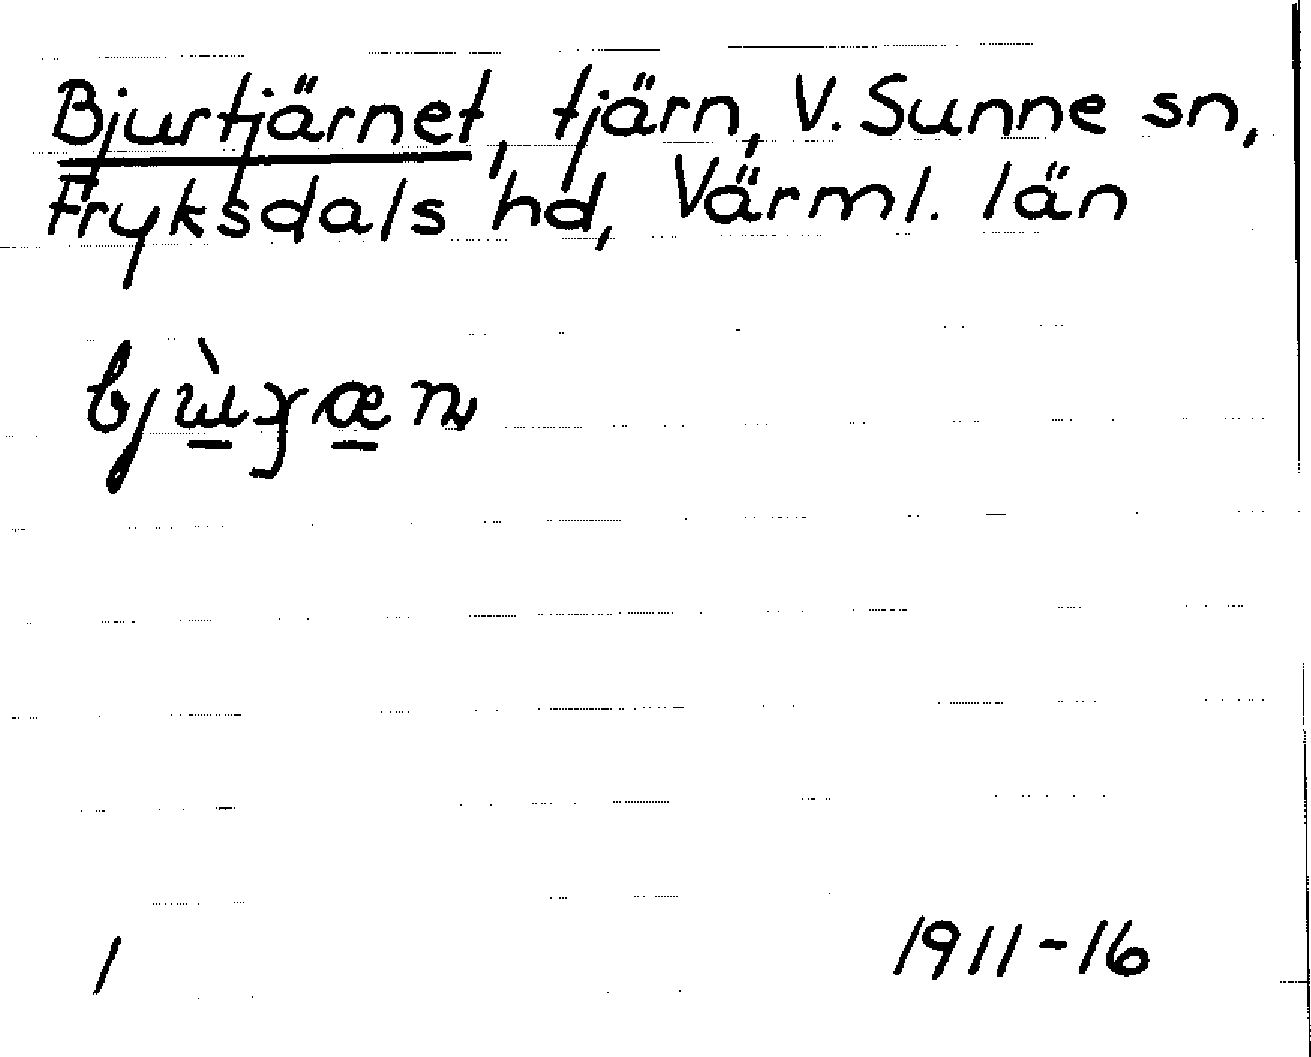 Bjurtjärnet, tjärn, V. Sunne sn,
Fryksdals hd, Värml. län
1
1911-16